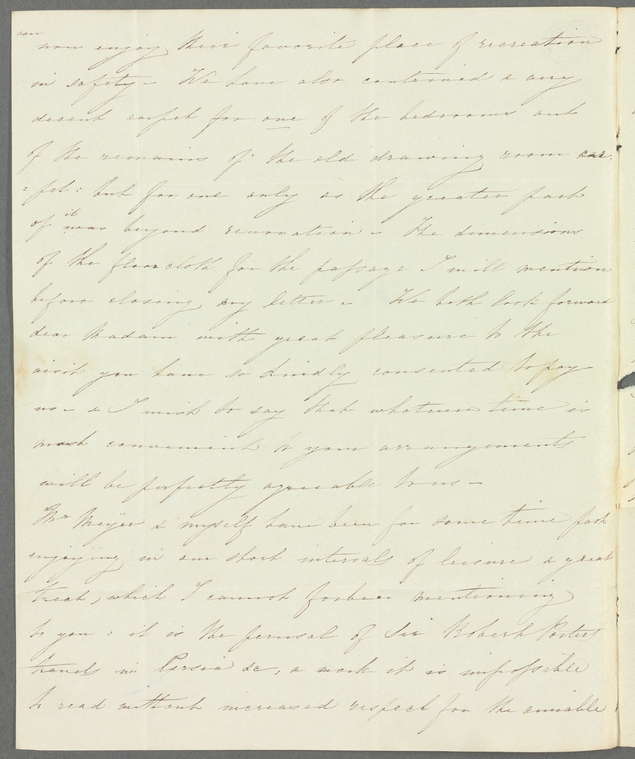 now enjoy their favorite place of recreation
in safety – We have also contrived a very
decent carpet for one of the bedrooms out
of the remains of the old drawing room car
= pet : but for one only as the greater part
of it was beyond renovation – The dimensions
of the floor cloth for the passage I will mention
before closing my letter – We both look forward
dear Madam with great pleasure to the
visit you have so kindly consented to pay
us – & I wish to say that whatever time is
most convenient to your arrangements
will be perfectly agreeable to us –
Mr Meyer & myself have been for some time past
enjoying in our short intervals of leisure a great
treat, which I cannot forbear mentioning
to you ; it is the perusal of Sir Robert Porters
travels in Persia &c, a work it is impossible
to read without increased respect for the amiable